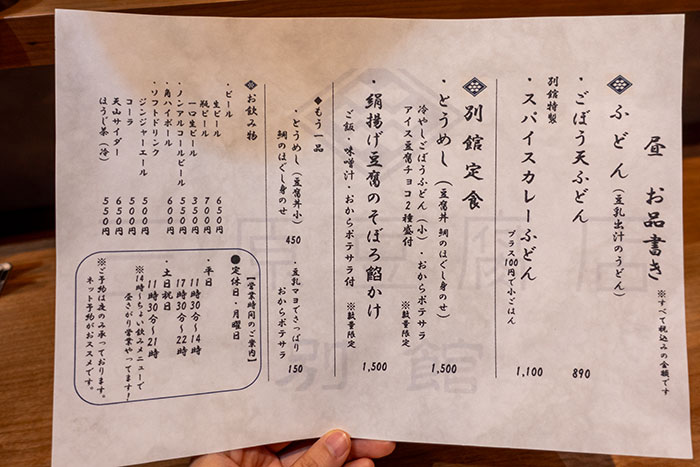 昼 お品書き
※すべて税込みの金額です
ふどん（豆乳出汁のうどん）
・ごぼう天ふどん 890
別館特製
・スパイスカレーふどん 1,100
プラス100円で小ごはん
別館定食
・とうめし（豆腐丼 鯛のほぐし身のせ） 1,500
冷やしごぼうふどん（小）・おからポテサラ
アイス豆腐チョコ2種盛付 ※数量限定
・絹揚げ豆腐のそぼろ餡かけ 1,500
ご飯・味噌汁・おからポテサラ付 ※数量限定
◆もう一品
・とうめし（豆腐丼小）
鯛のほぐし身のせ 450
・豆乳マヨでさっぱり
おからポテサラ 150
※お飲み物
・ビール
生ビール 650円
瓶ビール 700円
一口生ビール 350円
・ノンアルコールビール 550円
・角ハイボール 600円
・ソフトドリンク
ジンジャーエール 500円
コーラ 500円
天山サイダー 650円
ほうじ茶（冷） 550円
【営業時間のご案内】
●定休日・月曜日
・平日
11時30分〜14時
17時30分〜22時
・土日祝日
11時30分〜21時
※14時〜ちょい飲みメニューで
昼さがり営業やってます！
※ご予約は夜のみ承っております。
ネット予約がおススメです。
豆腐店
別館